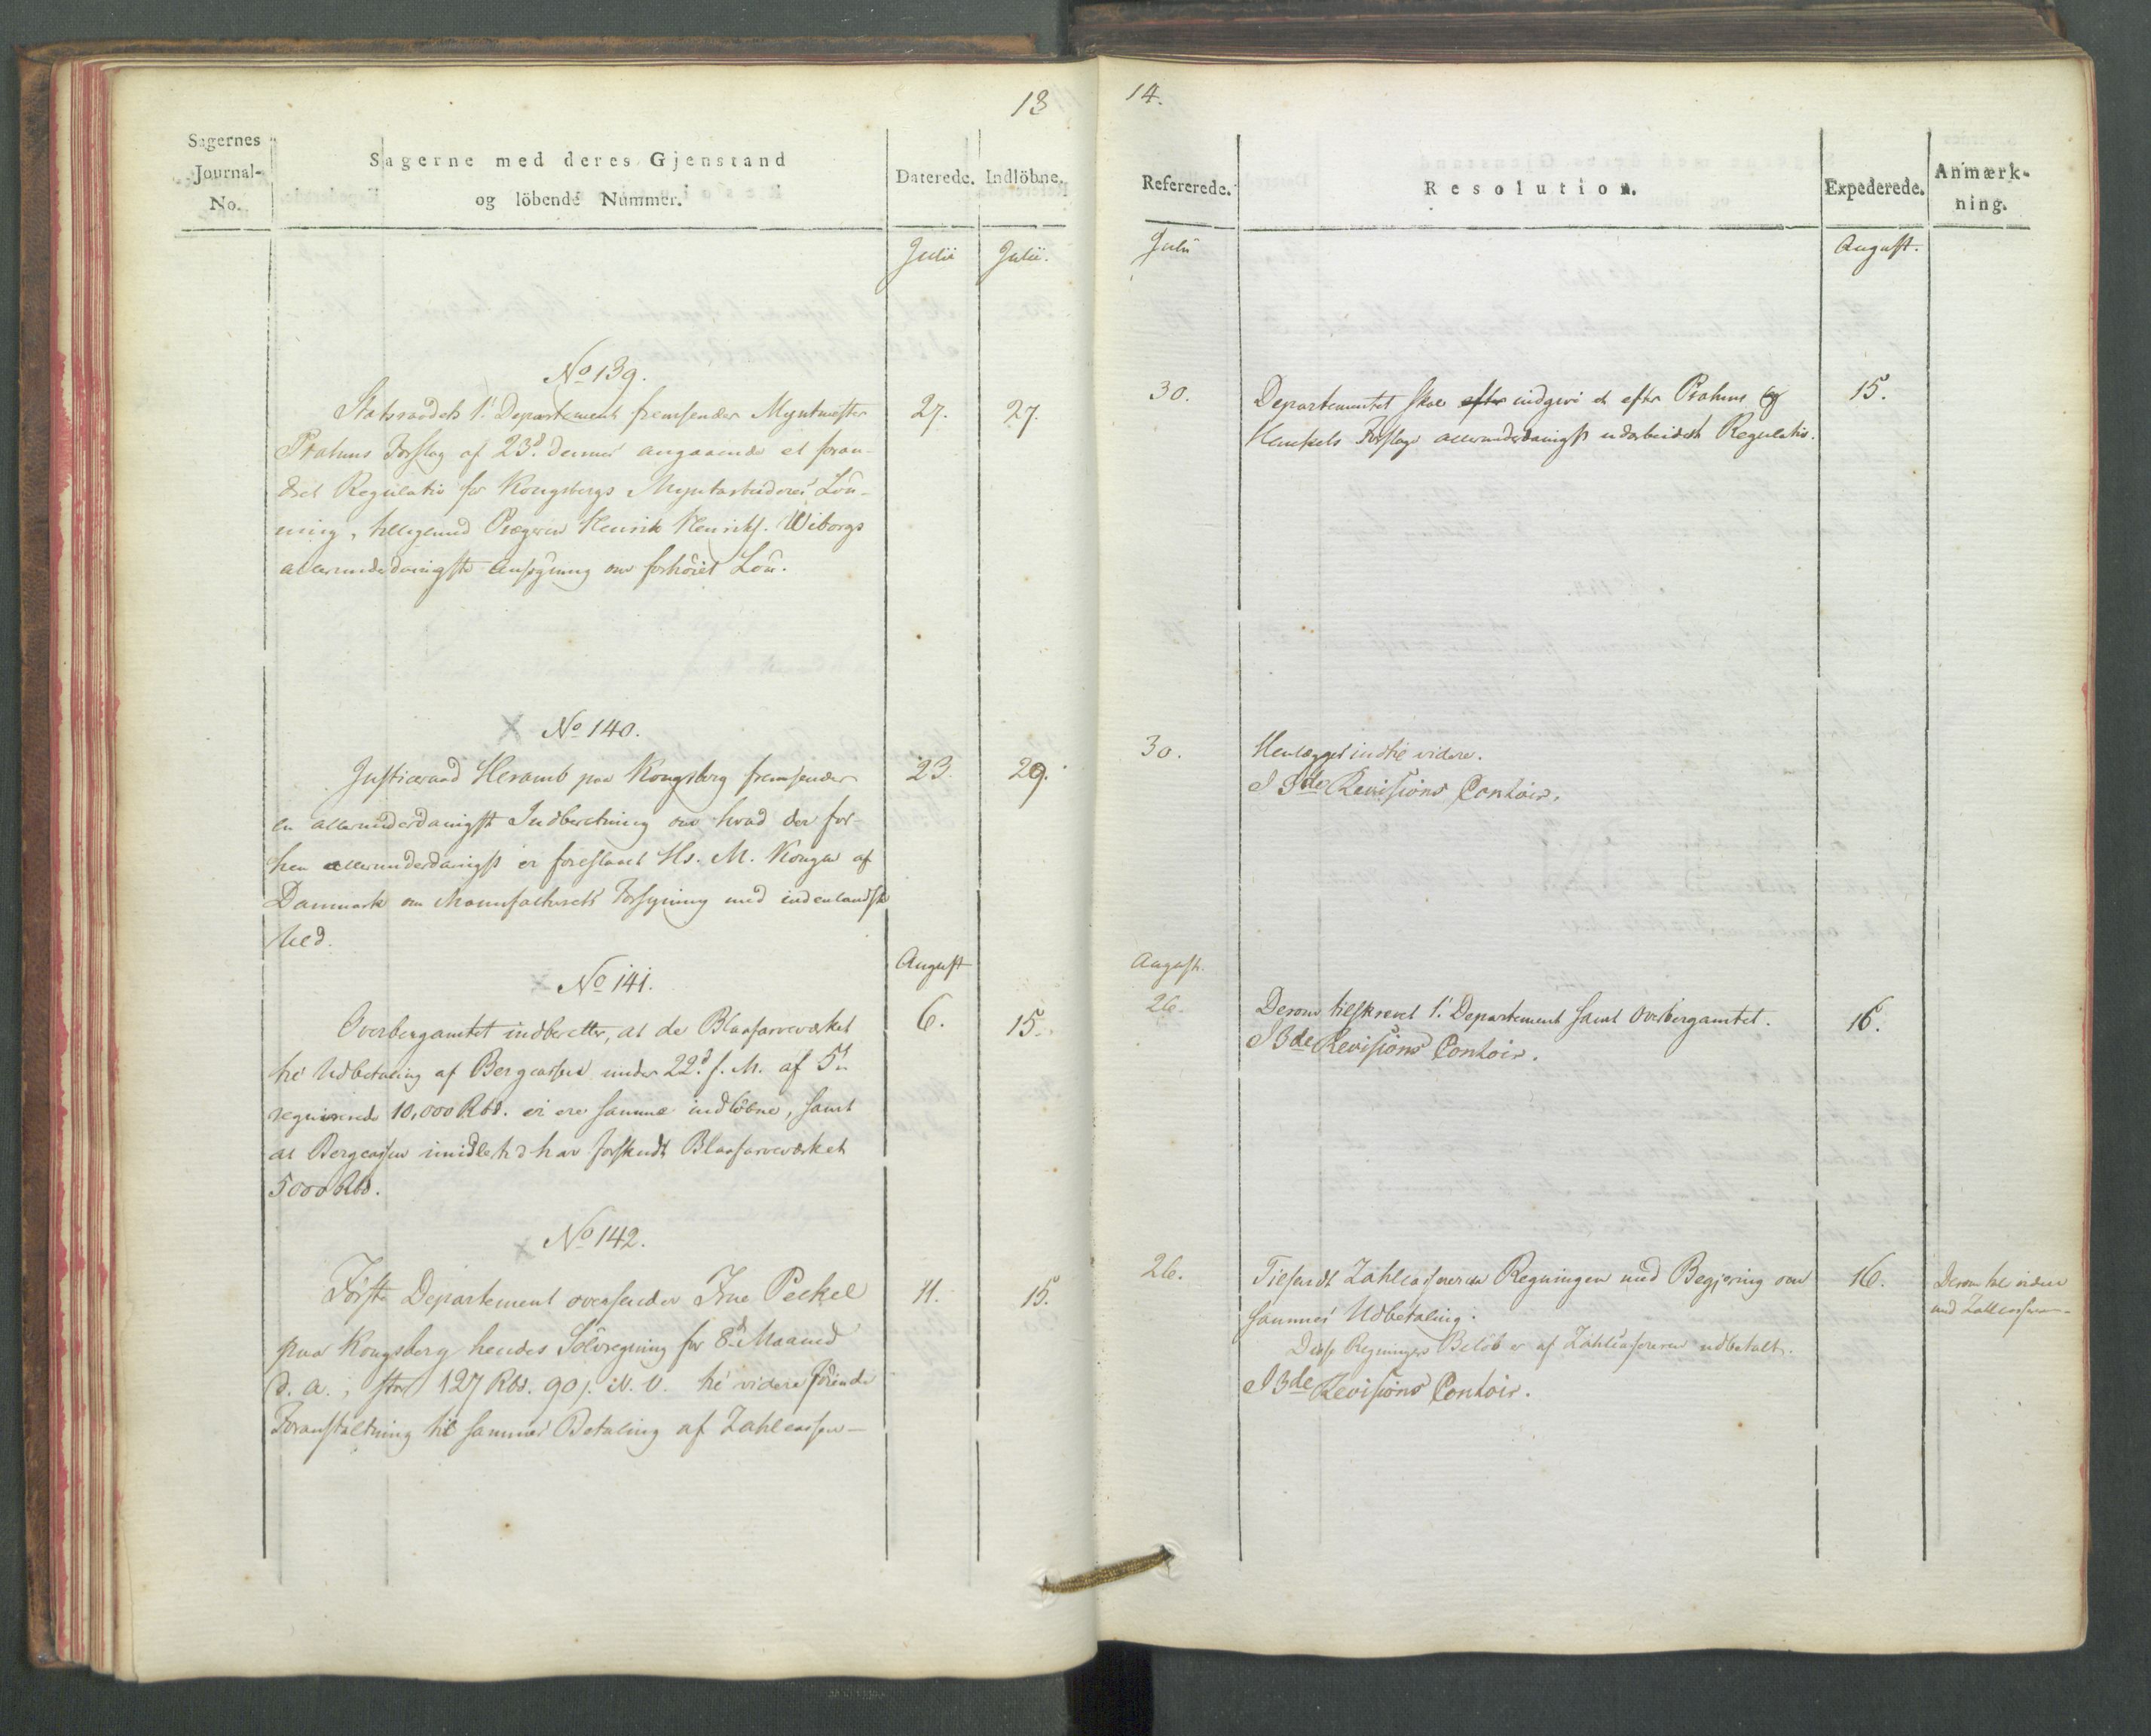 13
Sagernes
Journal-
No.
Sagerne med deres Gjenstand
og löbende Nummer.
Daterede.
Indlöbne.
Julii
Julii.
No 139.
Statsraadets 1. Departement fremsender Myntmester
Prahms Forslag af 23d. dennes angaaende et foran-
dret Regulativ for Kongsbergs Myntarbeideres Løn-
ning, tilligemed Prægeren Henrik Henriks. Wiborgs
allerunderdanigste Ansøgning om forhøiet Løn.
27.
27.
No 140.
Justitsraad Heramb paa Kongsberg fremsender
en allerunderdanigst Indberetning om hvad der for-
hen allerunderdanigst er foreslaaet Hs. M. Kongen af
Danmark om Manufacturets Forsyning med indenlandsk
Uld.
23.
29.
August
No 141.
Overbergamtet indberetter, at de Blaafarveværket
til Udbetaling af Bergcassen under 22d. f. M. af 5t
requirerede 10,000 Rbd. ei ere samme indløbne, samt
at Bergcassen imidlertid har forskudt Blaafarveværket
5000 Rbd.
6.
15.
No 142.
Første Departement oversender Frue Peckel
paa Kongsberg hendes Sølvregning for 8d Maaned
d. A., stor 127 Rbd. 90 s. N. V. til videre fornøden
Foranstaltning til sammes Betaling af Zahlcassen—
11.
15.
14.
Refererede.
Resolution.
Expederede.
Anmærk-
ning.
Julii
August.
30.
Departementet skal indgive et efter Prahms og
Henckels Forslage allerunderdanigst udarbeidet Regulativ.
15.
30.
Henlægges indtil videre.
I 3de Revisions Contoir.
August.
26.
Derom tilskrevet 1. Departement samt Overbergamtet.
I 3de Revisions Contoir.
16.
26.
Tilsendt Zahlcassereren Regningen med Begjering om
sammes Udbetaling.
Disse Regningers Beløb er af Zahlcassereren udbetalt.
I 3de Revisions Contoir.
16.
Derom
med Zahlcasseren—